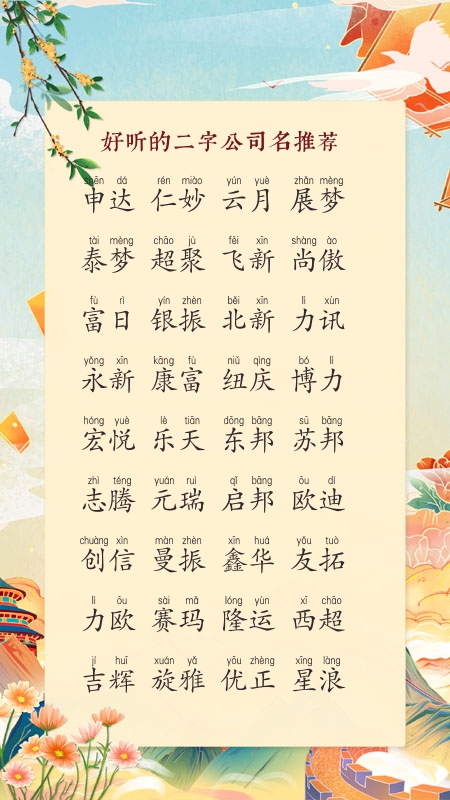 好听的二字公司名推荐
shēn dá rén miào yún yuè zhǎn mèng
申达 仁妙 云月 展梦
tài mèng chāo jù fēi xīn shàng ào
泰梦 超聚 飞新 尚傲
fù rì yín zhèn běi xīn lì xùn
富日 银振 北新 力讯
yǒng xīn kāng fù niǔ qìng bó lì
永新 康富 纽庆 博力
hóng yuè lè tiān dōng bāng sū bāng
宏悦 乐天 东邦 苏邦
zhì téng yuán ruì qǐ bāng ōu dí
志腾 元瑞 启邦 欧迪
chuàng xìn màn zhèn xīn huá yǒu tuò
创信 曼振 鑫华 友拓
lì ōu sài mǎ lóng yùn xī chāo
力欧 赛玛 隆运 西超
jí huī xuán yǎ yōu zhèng xīng làng
吉辉 旋雅 优正 星浪